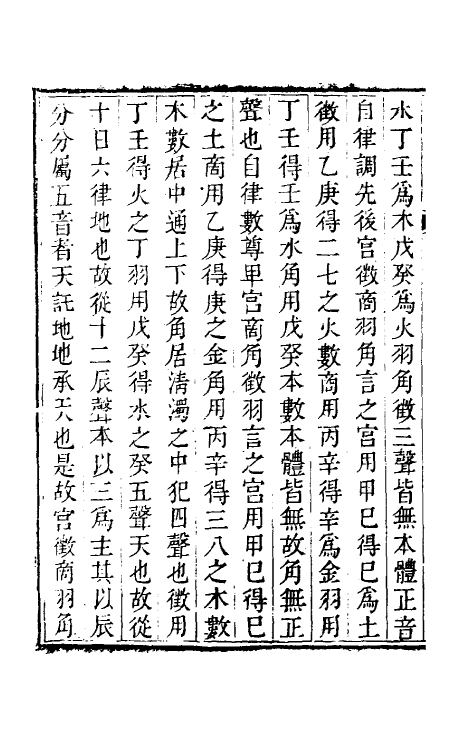 水丁壬爲木戊癸爲火羽角徵三聲皆無本體正音
自律調先後宮徵商羽角言之宮用甲巳得巳爲土
徵用乙庚得二七之火數商用丙辛得辛爲金羽用
丁壬得壬爲水角用戊癸本數本體皆無故角無正
聲也自律數尊卑宮商角徵羽言之宮用甲巳得巳
之土商用乙庚得庚之金角用丙辛得三八之木數
木數居中通上下故角居淸濁之中犯四聲也徵用
丁壬得火之丁羽用戊癸得水之癸五聲天也故從
十日六律地也故從十二辰聲本以三爲主其以辰
分分屬五音者天託地地承天也是故宮徵商羽角